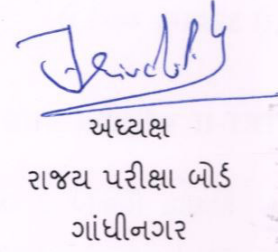 અધ્યક્ષ
રાજય પરીક્ષા બોર્ડ
ગાંધીનગર